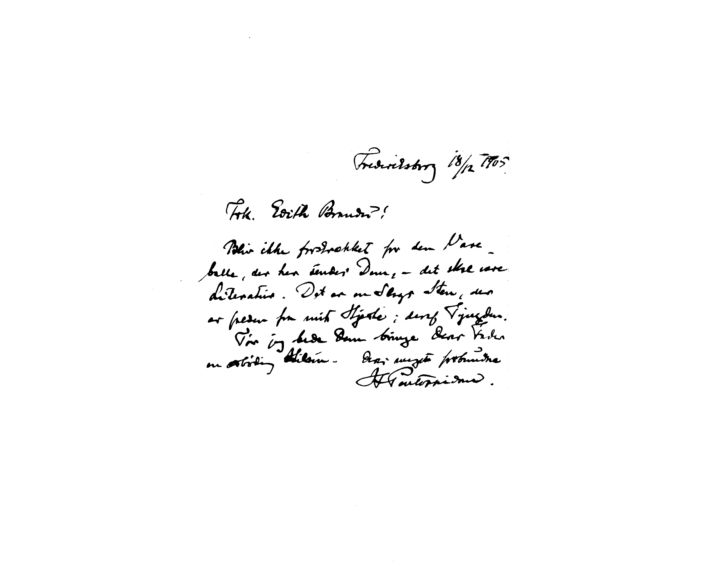 Frederiksborg 18/12 1905.
Frk. Edith Brandes!
Bliv ikke forskrækket for den Vare-
balle, der her sendes Dem, – det skal være
Literatur. Det er en Slags Sten, der
er falden fra mit Hjerte; deraf Tyngden.
Tør jeg bede Dem bringe Deres Fader
en ærbødig Hilsen. Deres meget forbundne
H Pontoppidan.